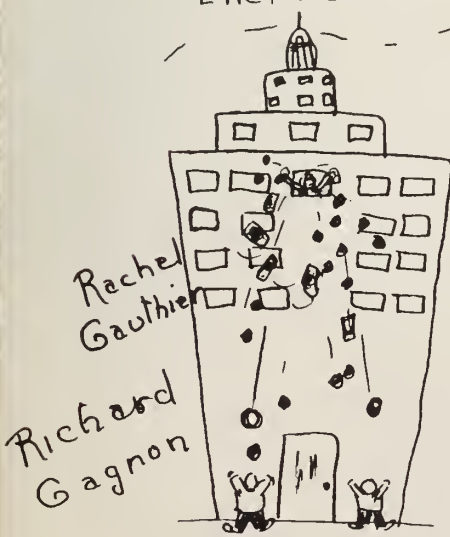 Rachel
Gauthier
Richard
Gagnon